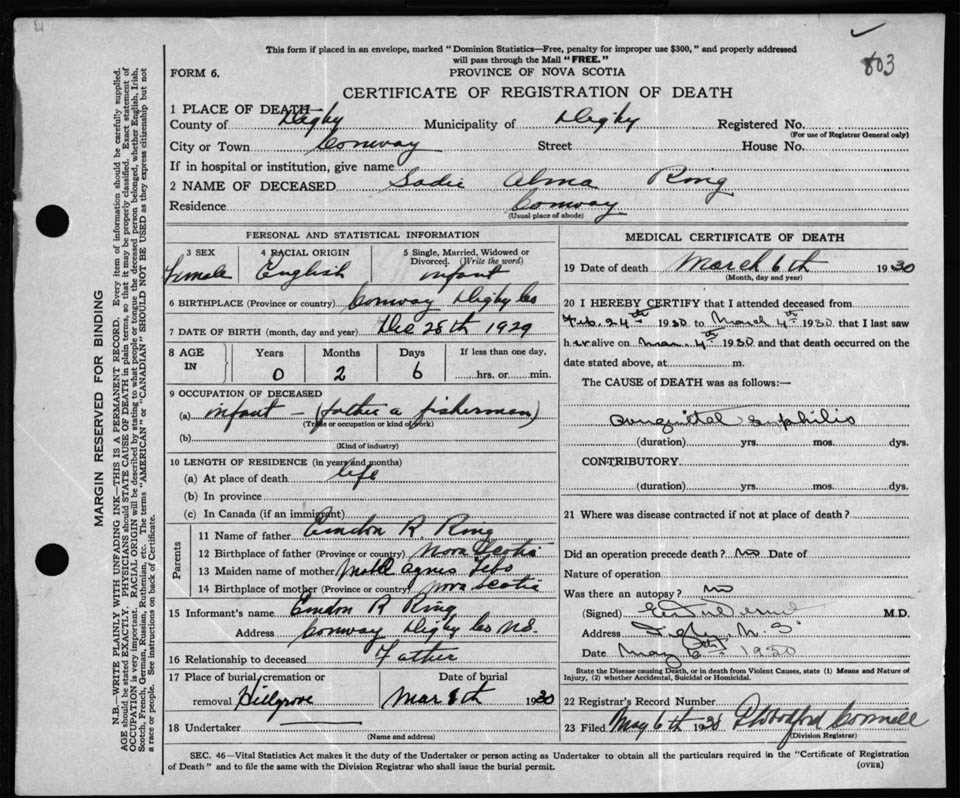 803
This form if placed in an envelope, marked "Dominion Statistics—Free, penalty for improper use $300," and properly addressed
will pass through the Mail "FREE."
FORM 6.
PROVINCE OF NOVA SCOTIA
CERTIFICATE OF REGISTRATION OF DEATH
1 PLACE OF DEATH—
County of Digby Municipality of Digby Registered No.
(For use of Registrar General only)
City or Town Conway Street House No.
If in hospital or institution, give name
2 NAME OF DECEASED Sadie Alma Ring
Residence Conway
(Usual place of abode)
PERSONAL AND STATISTICAL INFORMATION
3 SEX 4 RACIAL ORIGIN 5 Single, Married, Widowed or
Divorced. (Write the word)
Female English infant
6 BIRTHPLACE (Province or country) Conway Digby Co
7 DATE OF BIRTH (month, day and year) Dec 28th 1929
8 AGE IN Years Months Days If less than one day,
0 2 6 hrs. or min.
9 OCCUPATION OF DECEASED
(a) infant – (father a fisherman)
(Trade occupation or kind of work)
(b)
(Kind of industry)
10 LENGTH OF RESIDENCE (in years and months)
(a) At place of death life
(b) In province
(c) In Canada (if an immigrant)
Parents
11 Name of father R Ring
12 Birthplace of father (Province or country) Nova Scotia
13 Maiden name of mother Agnes
14 Birthplace of mother (Province or country) Nova Scotia
15 Informant's name R Ring
Address Conway Digby Co N.S.
16 Relationship to deceased Father
17 Place of burial, cremation or
removal Hillgrove Date of burial Mar 8th 1930
18 Undertaker
(Name and address)
MEDICAL CERTIFICATE OF DEATH
19 Date of death March 6th 1930
(Month, day and year)
20 I HEREBY CERTIFY that I attended deceased from
Feb. 24th 1930 to March 4th 1930 that I last saw
h er alive on Mar. 4th 1930 and that death occurred on the
date stated above, at m.
The CAUSE of DEATH was as follows:—
Congenital Syphilis
(duration) yrs. mos. dys.
CONTRIBUTORY
(duration) yrs. mos. dys.
21 Where was disease contracted if not at place of death?
Did an operation precede death? no Date of
Nature of operation
Was there an autopsy? no
(Signed) M.D.
Address Digby N.S.
Date May 6th 1930
State the Disease causing Death, or in death from Violent Causes, state (1) Means and Nature of
Injury, (2) whether Accidental, Suicidal or Homicidal.
22 Registrar's Record Number
23 Filed May 6th 1930 Connell
(Division Registrar)
SEC. 46—Vital Statistics Act makes it the duty of the Undertaker or person acting as Undertaker to obtain all the particulars required in the "Certificate of Registration
of Death" and to file the same with the Division Registrar who shall issue the burial permit.
(OVER)
MARGIN RESERVED FOR BINDING
N.B.—WRITE PLAINLY WITH UNFADING INK—THIS IS A PERMANENT RECORD. Every item of information should be carefully supplied.
AGE should be stated EXACTLY. PHYSICIANS should STATE CAUSE OF DEATH in plain terms, so that it may be properly classified. Exact statement of
OCCUPATION is very important. RACIAL ORIGIN will be described by stating to what people or tongue the deceased person belonged, whether English, Irish,
Scotch, French, German, Russian, Ruthenian, etc. The terms "AMERICAN" or "CANADIAN" SHOULD NOT BE USED as they express citizenship but not
a race or people. See instructions on back of Certificate.